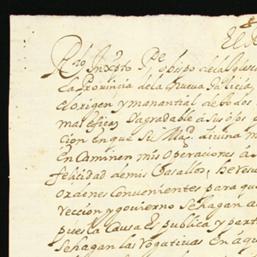 El R
Rdo. in Xpto. Pe. y obpo dela Iglesia
la Provincia dela Nueva Galicia,
el origen y manantial de todos
mal eficaz, y agradable a sus ojos
cion en que su Magd. Divina m
En Caminen mis Operaciones á
felicidad demis Vasallos, He resu
ordenes Convenientes para que
reccion y govierno se hagan a
puesta Causa Es publica y pert
Se hagan las Rogativas En aqu